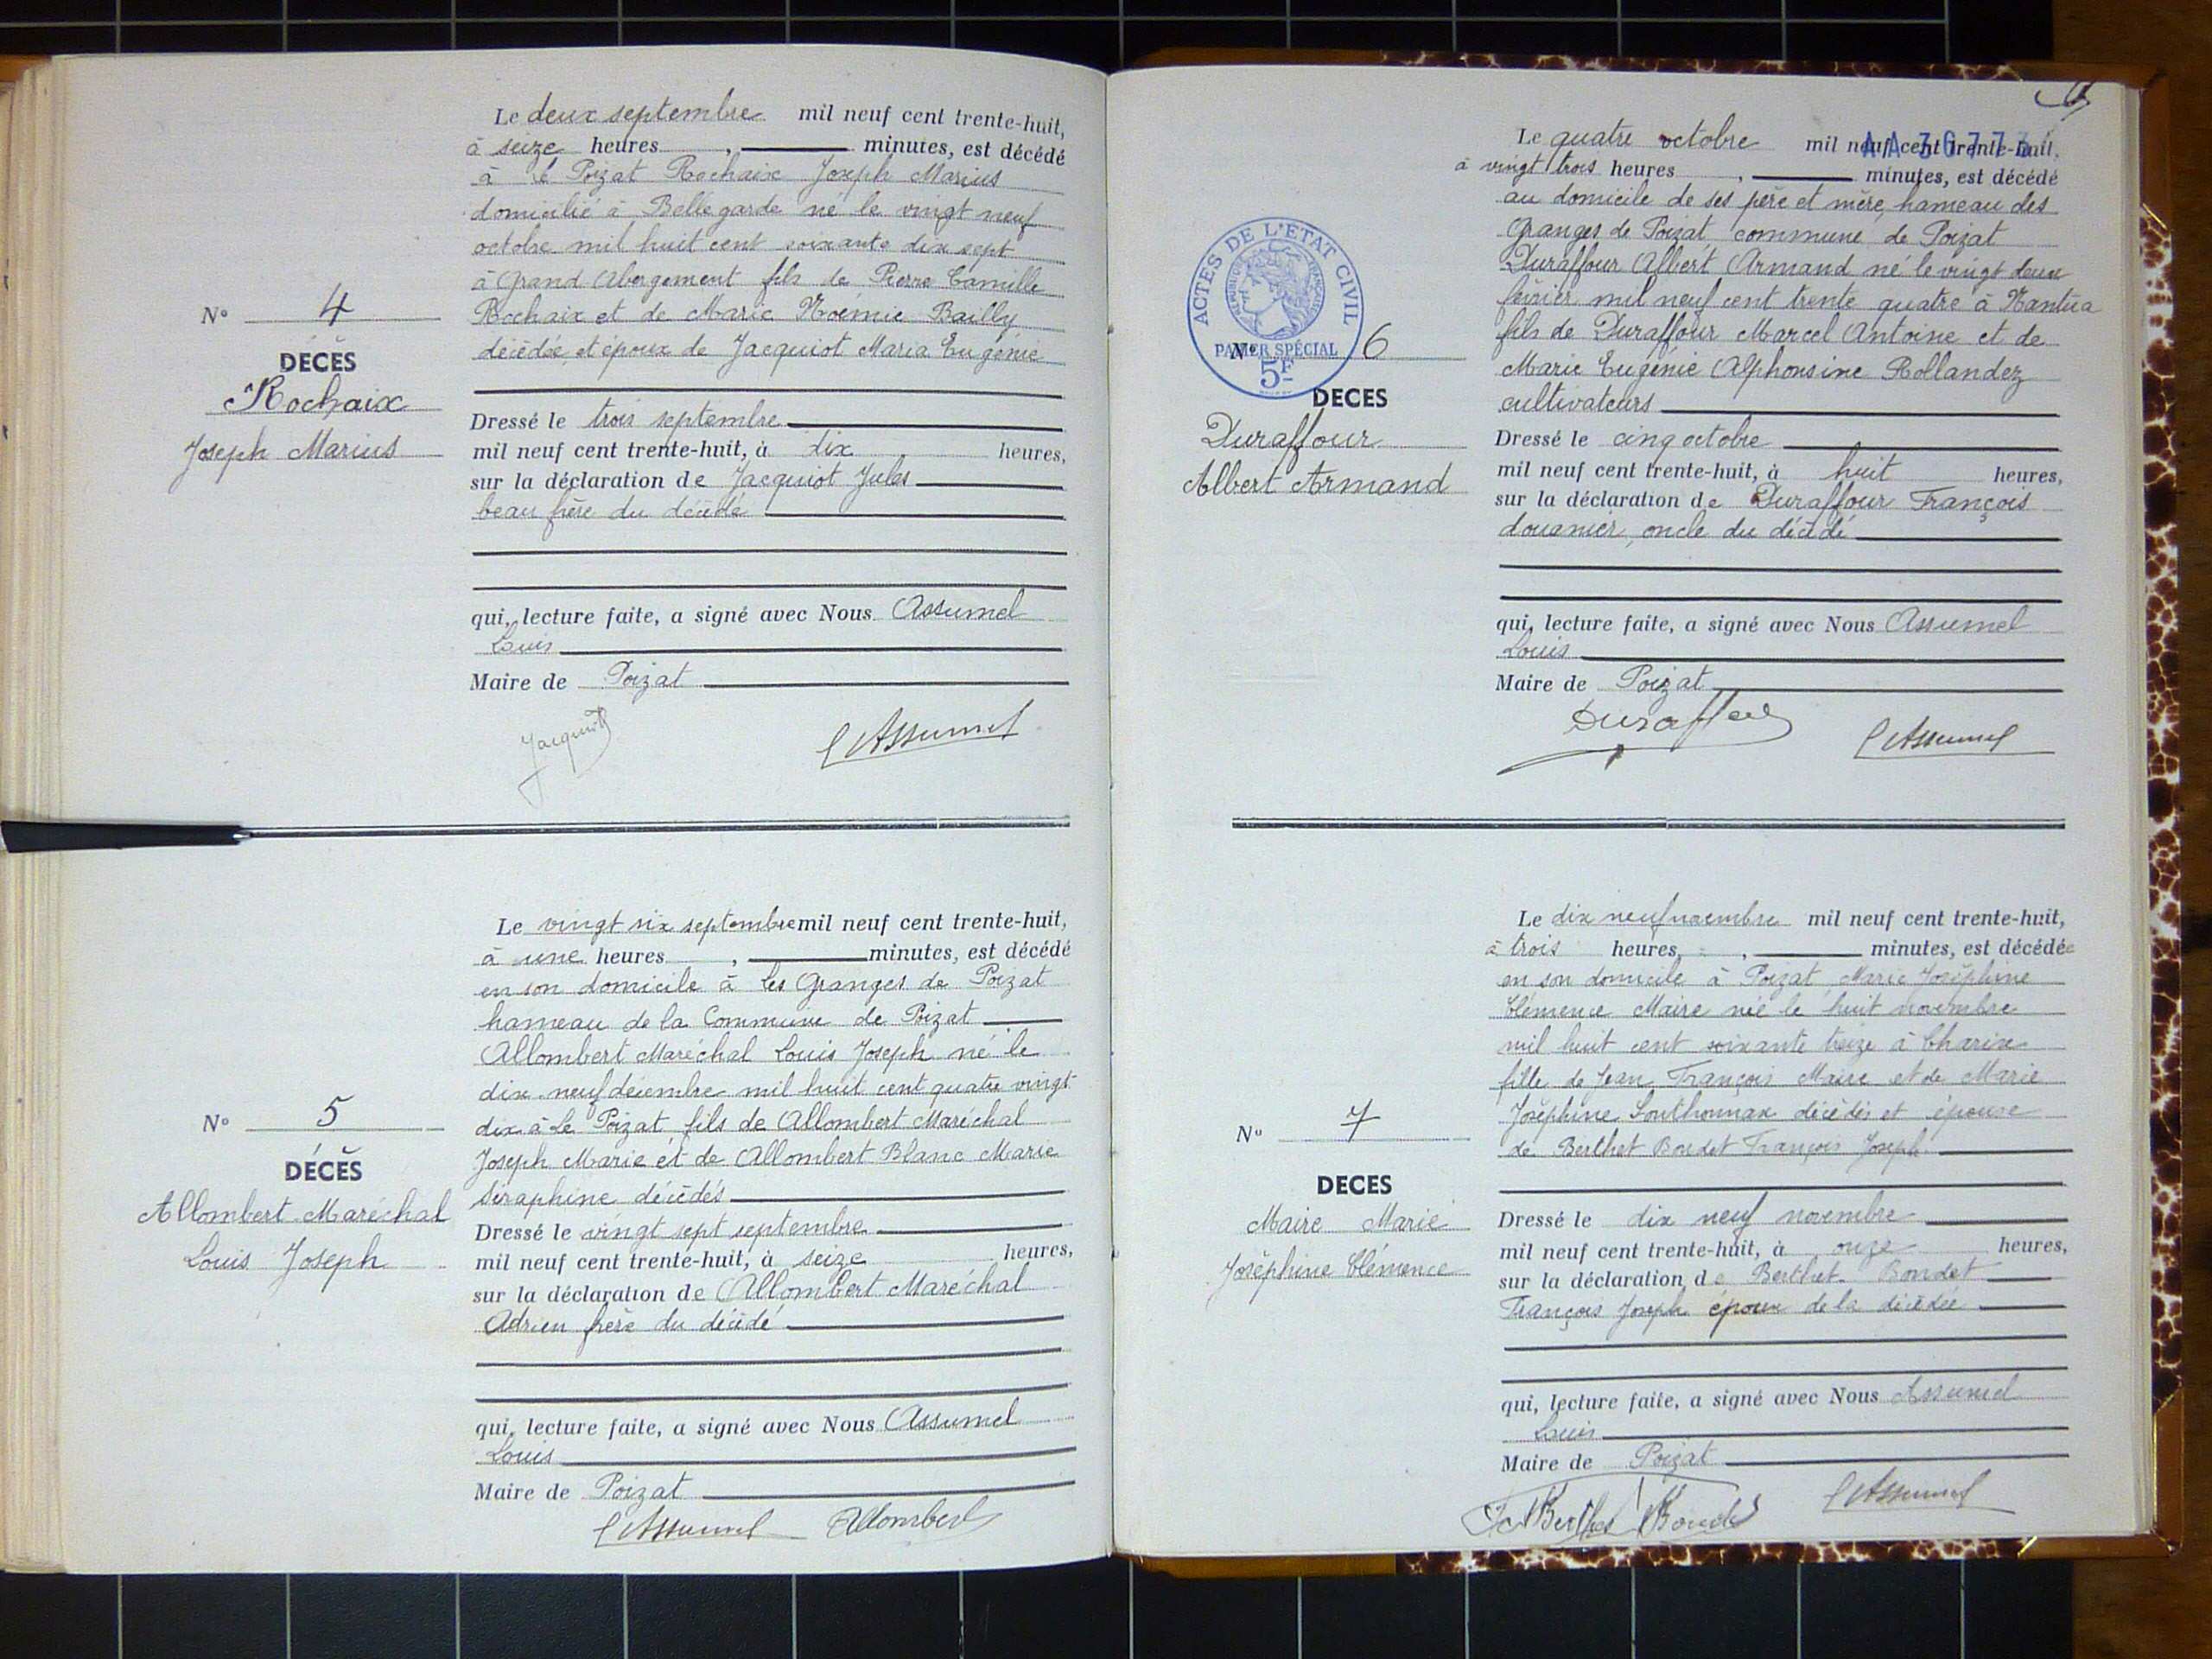 Le deux septembre mil neuf cent trente-huit,
à seize heures , minutes, est décédé
à le Poizat Rochaix Joseph Marius
domicilié à Bellegarde né le vingt neuf
octobre mil huit cent soixante dix sept
à Grand Abergement fils de Pierre Camille
Rochaix et de Marie Noémie Bailly
décédée et époux de Jacquiot Maria Eugénie
N° 4
DÉCÈS
Rochaix
Joseph Marius
Dressé le trois septembre
mil neuf cent trente-huit, à dix heures,
sur la déclaration de Jacquiot Jules
beau frère du décédé
qui, lecture faite, a signé avec Nous Assumel
Louis
Maire de Poizat
Jacquiot
L Assumel
Le vingt six septembre mil neuf cent trente-huit,
à une heures , minutes, est décédé
en son domicile à Les Granges de Poizat
hameau de la Commune de Poizat
Allombert Maréchal Louis Joseph né le
dix neuf décembre mil huit cent quatre vingt
dix à Le Poizat fils de Allombert Maréchal
Joseph Marie et de Allombert Blanc Marie
Séraphine décédés
N° 5
DÉCÈS
Allombert-Maréchal
Louis Joseph
Dressé le vingt sept septembre
mil neuf cent trente-huit, à seize heures,
sur la déclaration de Allombert Maréchal
Adrien frère du décédé
qui, lecture faite, a signé avec Nous Assumel
Louis
Maire de Poizat
L Assumel Allombert
Le quatre octobre mil neuf cent trente-huit,
à vingt trois heures , minutes, est décédé
au domicile de ses père et mère, hameau des
Granges de Poizat commune de Poizat
Duraffour Albert Armand né le vingt deux
février mil neuf cent trente quatre à Nantua
fils de Duraffour Marcel Antoine et de
Marie Eugénie Alphonsine Rollandez
cultivateurs
ACTES DE L'ETAT CIVIL
REPUBLIQUE FRANÇAISE
PAPIER SPÉCIAL
5F
N° 6
DECES
Duraffour
Albert Armand
Dressé le cinq octobre
mil neuf cent trente-huit, à huit heures,
sur la déclaration de Duraffour François
douanier, oncle du décédé
qui, lecture faite, a signé avec Nous Assumel
Louis
Maire de Poizat
Duraffour
L Assumel
Le dix neuf novembre mil neuf cent trente-huit,
à trois heures , minutes, est décédée
en son domicile à Poizat Marie Joséphine
Clémence Maire née le huit novembre
mil huit cent soixante treize à Charix
fille de Jean François Maire et de Marie
Joséphine Southonnax décédés et épouse
de Berthet Bondet François Joseph
N° 7
DECES
Maire Marie
Joséphine Clémence
Dressé le dix neuf novembre
mil neuf cent trente-huit, à onze heures,
sur la déclaration de Berthet-Bondet
François Joseph époux de la décédée
qui, lecture faite, a signé avec Nous Assumel
Louis
Maire de Poizat
Berthet Bondet
L Assumel